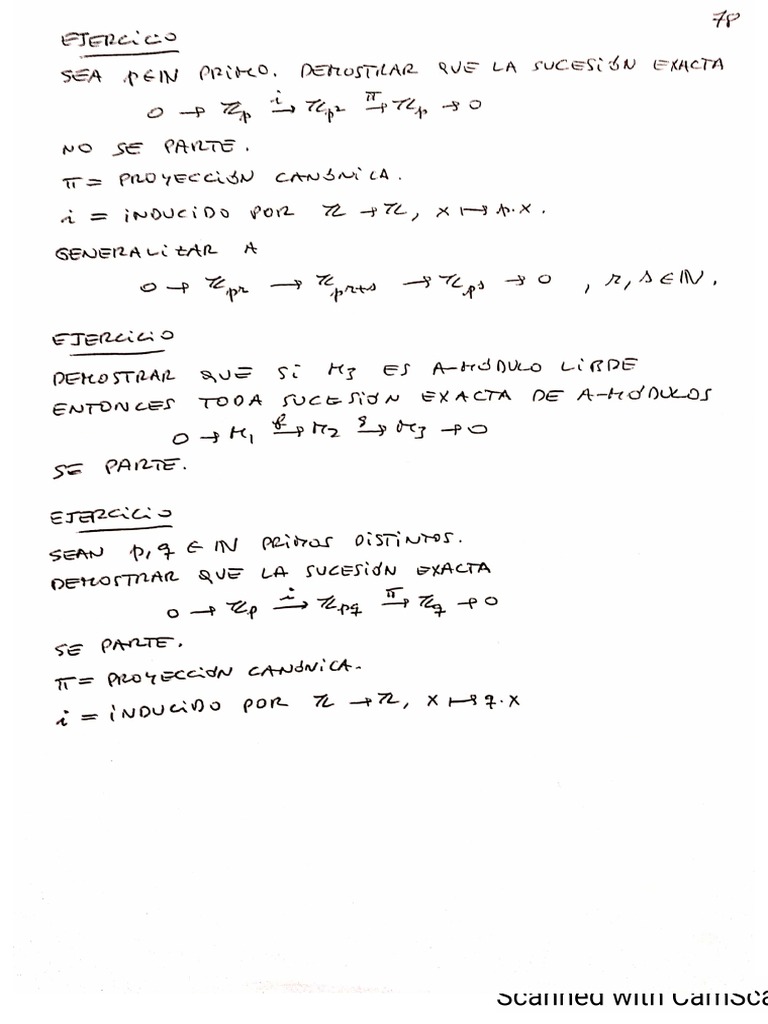 78
EJERCICIO
SEA p∈ℕ PRIMO. DEMOSTRAR QUE LA SUCESIÓN EXACTA
0 → ℤp →i ℤp² →π ℤp → 0
NO SE PARTE.
π = PROYECCIÓN CANÓNICA.
i = INDUCIDO POR ℤ → ℤ, x ↦ p·x.
GENERALIZAR A
0 → ℤpr → ℤpr+s → ℤps → 0 , r, s ∈ ℕ.
EJERCICIO
DEMOSTRAR QUE SI M3 ES A-MÓDULO LIBRE
ENTONCES TODA SUCESIÓN EXACTA DE A-MÓDULOS
0 → M1 →f M2 →g M3 → 0
SE PARTE.
EJERCICIO
SEAN p, q ∈ ℕ PRIMOS DISTINTOS.
DEMOSTRAR QUE LA SUCESIÓN EXACTA
0 → ℤp →i ℤpq →π ℤq → 0
SE PARTE.
π = PROYECCIÓN CANÓNICA.
i = INDUCIDO POR ℤ → ℤ, x ↦ q·x
Scanned with CamSca